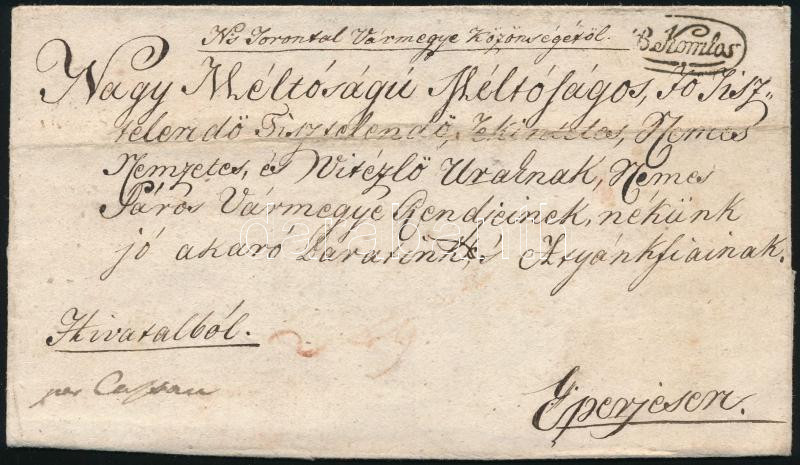 Ns Torontal Vármegye Közönségétöl.
B. Komlos
Nagy Méltóságú Méltóságos, Fö Tisz-
telendö Tisztelendö, Tekintetes, Nemes
Nemzetes, és Vitézlö Uraknak, Nemes
Sáros Vármegye Rendjeinek, nékünk
jó akaró Baratink, s Atyánkfiainak.
Hivatalból.
per Cassau
Eperjesen.
darabanth